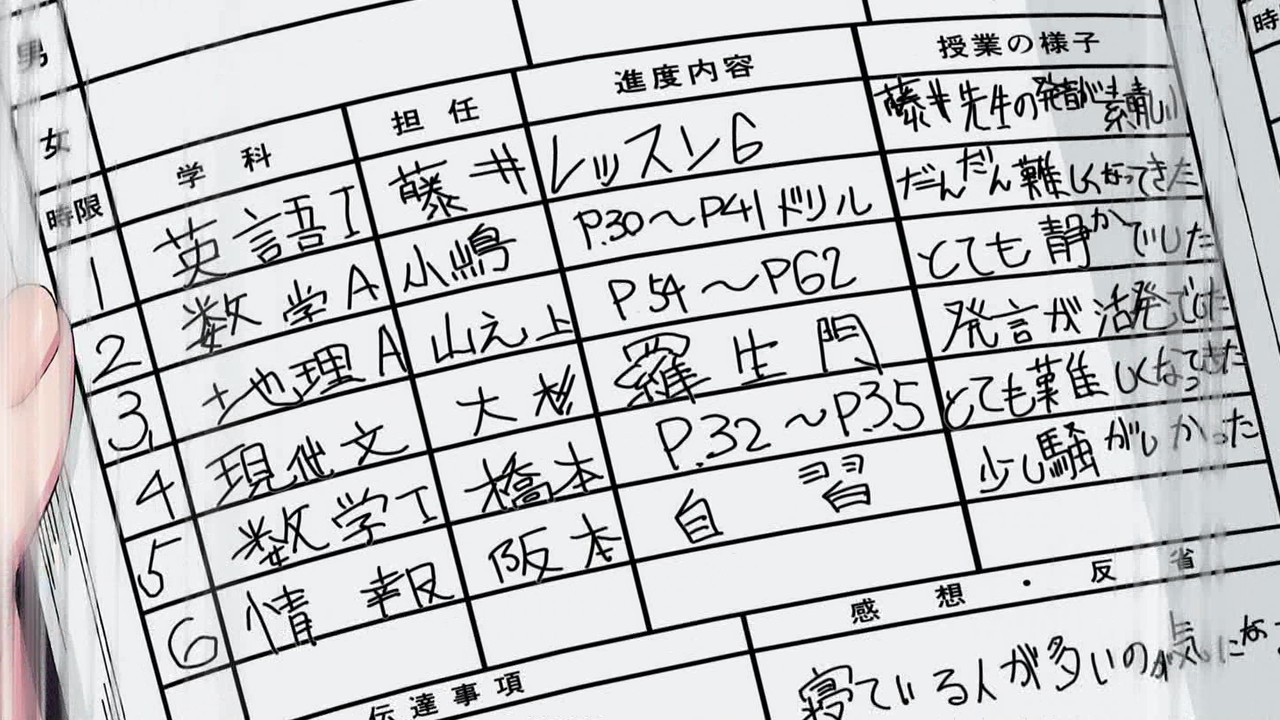 男
女
学科 担任 進度内容 授業の様子
時限
1 英語I 藤井 レッスン6 藤井先生の発音が素晴しい
2 数学A 小嶋 P.30～P41ドリル だんだん難しくなってきた
3 地理A 山之上 P54～P62 とても静かでした
4 現代文 大杉 羅生門 発言が活発でした
5 数学I 橋本 P.32～P.35 とても難しくなってきた
6 情報 阪本 自習 少し騒がしかった
伝達事項 感想・反省
寝ている人が多いのが気にな
時